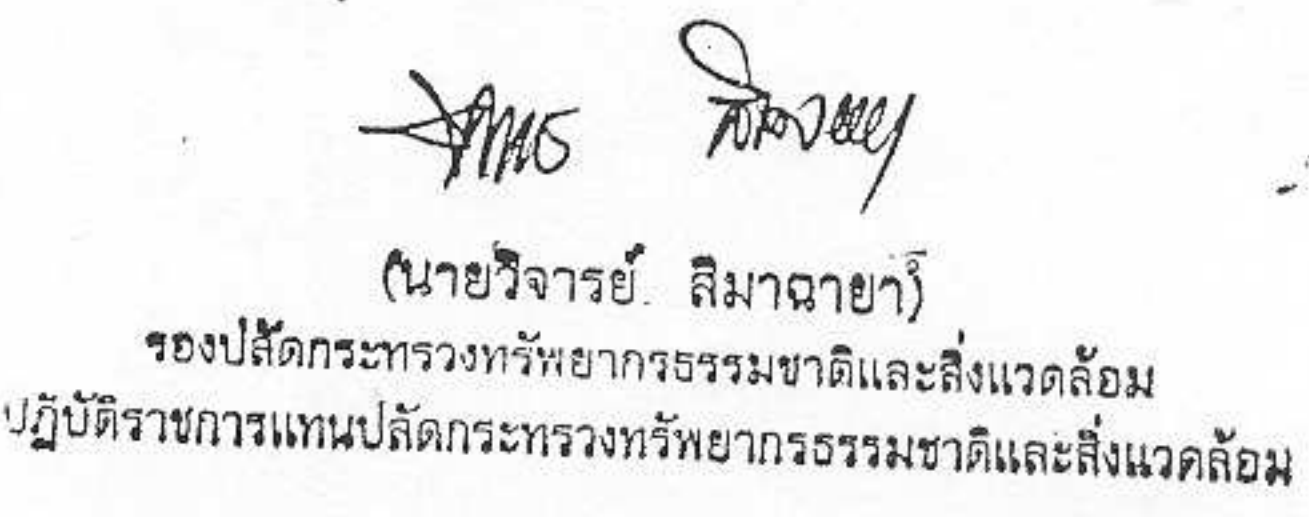 (นายวิจารย์ สิมาฉายา)
รองปลัดกระทรวงทรัพยากรธรรมชาติและสิ่งแวดล้อม
ปฏิบัติราชการแทนปลัดกระทรวงทรัพยากรธรรมชาติและสิ่งแวดล้อม